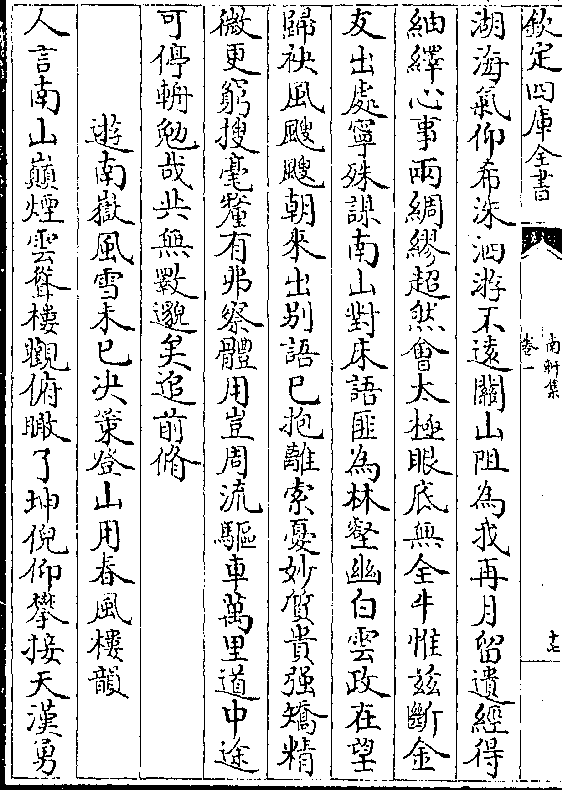 欽定四庫全書
南軒集
卷一
十七
湖海氣仰希洙泗游不遠關山阻為我再月留遺經得
紬繹心事兩綢繆超然會太極眼底無全牛惟兹斷金
友出處寧殊謀南山對床語匪為林壑幽白雲政在望
歸袂風颼颼朝來出别語已抱離索憂妙質貴强矯精
微更窮搜毫釐有弗察體用豈周流驅車萬里道中途
可停輈勉哉共無斁邈矣追前脩
遊南嶽風雪未已决策登山用春風樓韻
人言南山巔煙雲聳樓觀俯瞰了坤倪仰攀接天漢勇